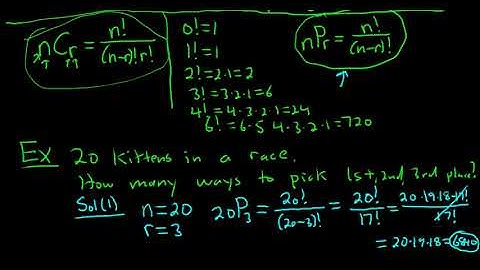 nCr = n!/(n-r)!r!
0! = 1
1! = 1
2! = 2·1 = 2
3! = 3·2·1 = 6
4! = 4·3·2·1 = 24
6! = 6·5 4·3·2·1 = 720
nPr = n!/(n-r)!
Ex 20 kittens in a race.
How many ways to pick 1st, 2nd, 3rd place?
Sol(1) n=20
r=3
20P3 = 20!/(20-3)! = 20!/17! = 20·19·18·17!/17!
= 20·19·18 = 6840